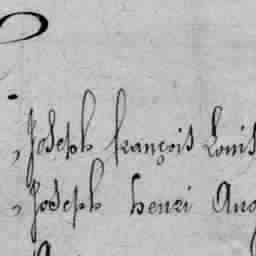 Joseph françois Louis
Joseph henri